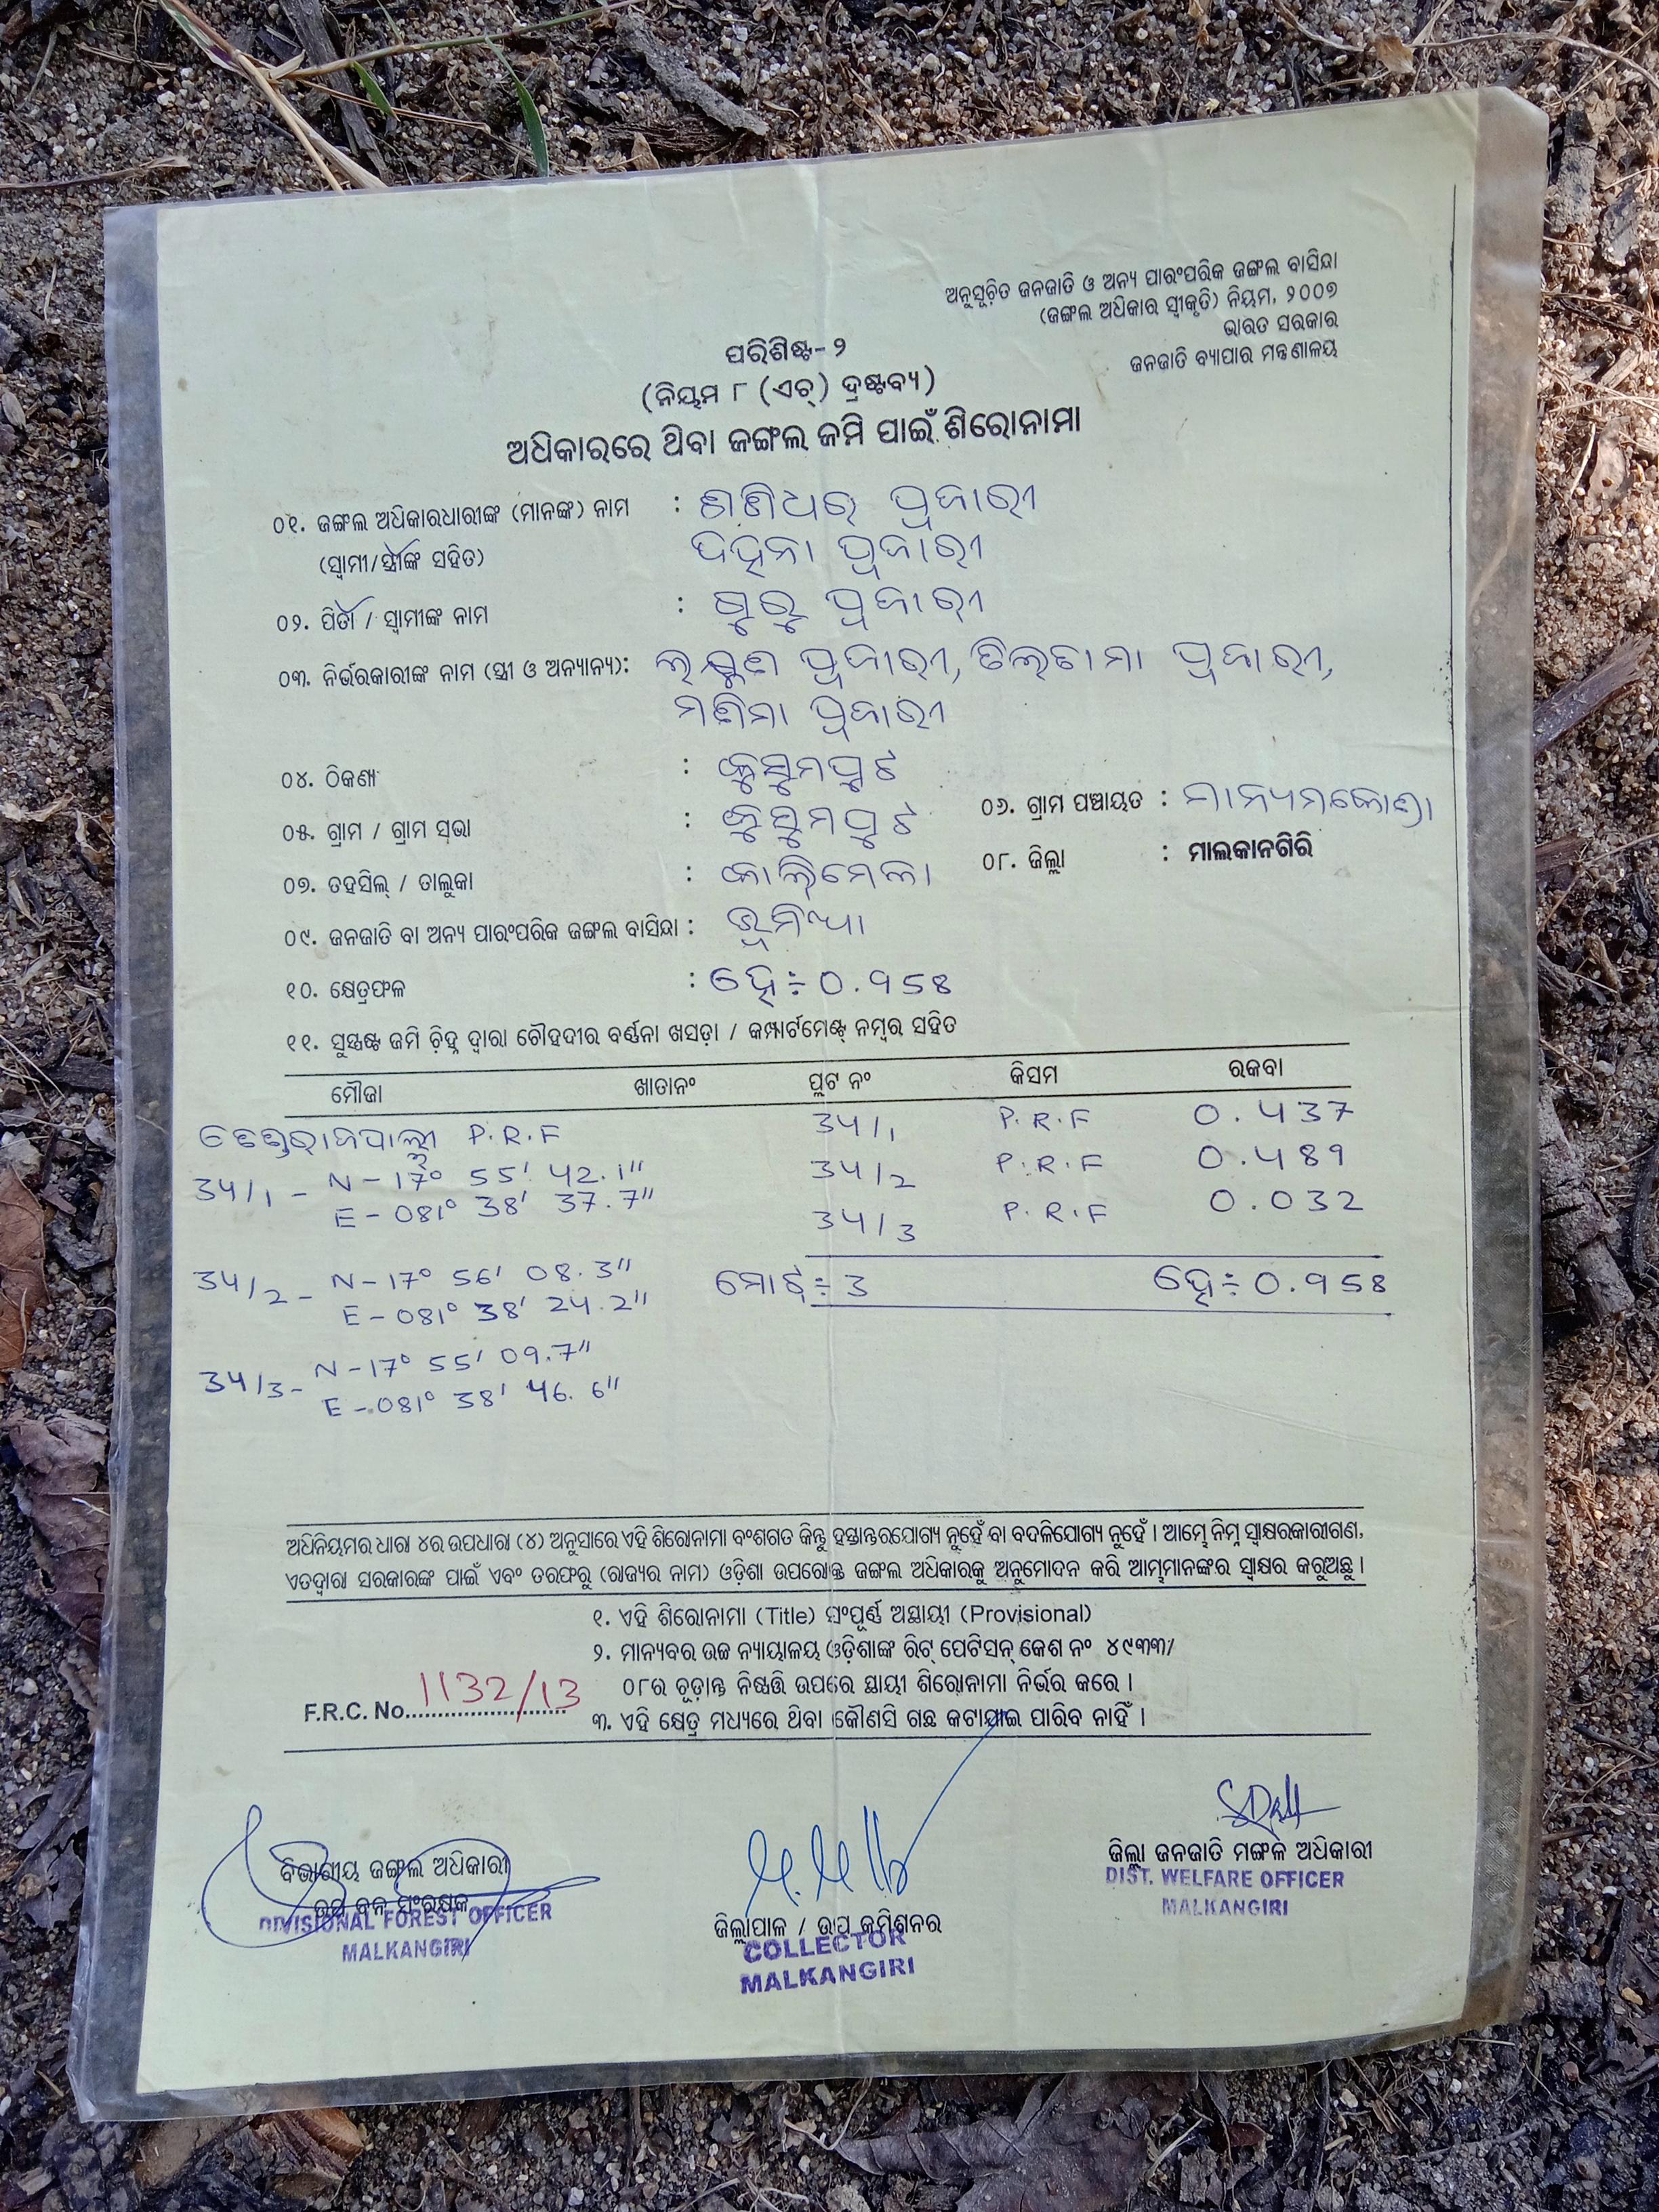 ଅନୁସୂଚିତ ଜନଜାତି ଓ ଅନ୍ୟ ପାରଂପରିକ ଜଙ୍ଗଲ ବାସିନ୍ଦା
(ଜଙ୍ଗଲ ଅଧିକାର ସ୍ୱୀକୃତି) ନିୟମ, ୨୦୦୭
ଭାରତ ସରକାର
ଜନଜାତି ବ୍ୟାପାର ମନ୍ତ୍ରଣାଳୟ
ପରିଶିଷ୍ଟ-୨
(ନିୟମ ୮ (ଏଚ୍) ଦ୍ରଷ୍ଟବ୍ୟ)
ଅଧିକାରରେ ଥିବା ଜଙ୍ଗଲ ଜମି ପାଇଁ ଶିରୋନାମା
୦୧. ଜଙ୍ଗଲ ଅଧିକାରଧାରୀଙ୍କ (ମାନଙ୍କ) ନାମ : ଶଶିଧର ପୂଜାରୀ
(ସ୍ୱାମୀ/ସ୍ତ୍ରୀଙ୍କ ସହିତ) ପୂଜାରୀ
୦୨. ପିତା / ସ୍ୱାମୀଙ୍କ ନାମ : ଗୁରୁ ପୂଜାରୀ
୦୩. ନିର୍ଭରକାରୀଙ୍କ ନାମ (ସ୍ତ୍ରୀ ଓ ଅନ୍ୟାନ୍ୟ): ପୂଜାରୀ, ପୂଜାରୀ,
ପୂଜାରୀ
୦୪. ଠିକଣା : କୁସୁମପୁଟ
୦୫. ଗ୍ରାମ / ଗ୍ରାମ ସଭା : କୁସୁମପୁଟ ୦୬. ଗ୍ରାମ ପଞ୍ଚାୟତ : ମାନ୍ୟମକୋଣ୍ଡା
୦୭. ତହସିଲ୍ / ତାଲୁକା : କାଲିମେଲା ୦୮. ଜିଲ୍ଲା : ମାଲକାନଗିରି
୦୯. ଜନଜାତି ବା ଅନ୍ୟ ପାରଂପରିକ ଜଙ୍ଗଲ ବାସିନ୍ଦା : ଭୂମିଆ
୧୦. କ୍ଷେତ୍ରଫଳ : ହେ÷0.958
୧୧. ସୁସ୍ପଷ୍ଟ ଜମି ଚିହ୍ନ ଦ୍ୱାରା ଚୌହଦୀର ବର୍ଣ୍ଣନା ଖସଡ଼ା / କମ୍ପାର୍ଟମେଣ୍ଟ ନମ୍ବର ସହିତ
ମୌଜା ଖାତାନଂ ପ୍ଲଟ ନଂ କିସମ ରକବା
P.R.F 34/1 P.R.F 0.437
34/1 - N-17° 55' 42.1" 34/2 P.R.F 0.489
E-081° 38' 37.7" 34/3 P.R.F 0.032
34/2 - N-17° 56' 08.3" ମୋଟ÷3 ହେ÷0.958
E-081° 38' 24.2"
34/3 - N-17° 55' 09.7"
E-081° 38' 46.6"
ଅଧିନିୟମର ଧାରା ୪ର ଉପଧାରା (୪) ଅନୁସାରେ ଏହି ଶିରୋନାମା ବଂଶଗତ କିନ୍ତୁ ହସ୍ତାନ୍ତରଯୋଗ୍ୟ ନୁହେଁ ବା ବଦଳିଯୋଗ୍ୟ ନୁହେଁ । ଆମ୍ଭେ ନିମ୍ନ ସ୍ୱାକ୍ଷରକାରୀଗଣ,
ଏତଦ୍ୱାରା ସରକାରଙ୍କ ପାଇଁ ଏବଂ ତରଫରୁ (ରାଜ୍ୟର ନାମ) ଓଡ଼ିଶା ଉପରୋକ୍ତ ଜଙ୍ଗଲ ଅଧିକାରକୁ ଅନୁମୋଦନ କରି ଆମ୍ଭମାନଙ୍କର ସ୍ୱାକ୍ଷର କରୁଅଛୁ ।
୧. ଏହି ଶିରୋନାମା (Title) ସଂପୂର୍ଣ୍ଣ ଅସ୍ଥାୟୀ (Provisional)
୨. ମାନ୍ୟବର ଉଚ୍ଚ ନ୍ୟାୟାଳୟ ଓଡ଼ିଶାଙ୍କ ରିଟ୍ ପେଟିସନ୍ କେଶ ନଂ ୪୯୩୩/
୦୮ର ଚୂଡ଼ାନ୍ତ ନିଷ୍ପତ୍ତି ଉପରେ ସ୍ଥାୟୀ ଶିରୋନାମା ନିର୍ଭର କରେ ।
F.R.C. No. 1132/13
୩. ଏହି କ୍ଷେତ୍ର ମଧ୍ୟରେ ଥିବା କୌଣସି ଗଛ କଟାଯାଇ ପାରିବ ନାହିଁ ।
ବିଭାଗୀୟ ଜଙ୍ଗଲ ଅଧିକାରୀ
ଉପ ବନ ସଂରକ୍ଷକ
DIVISIONAL FOREST OFFICER
MALKANGIRI
ଜିଲ୍ଲାପାଳ / ଉପ କମିଶନର
COLLECTOR
MALKANGIRI
ଜିଲ୍ଲା ଜନଜାତି ମଙ୍ଗଳ ଅଧିକାରୀ
DIST. WELFARE OFFICER
MALKANGIRI